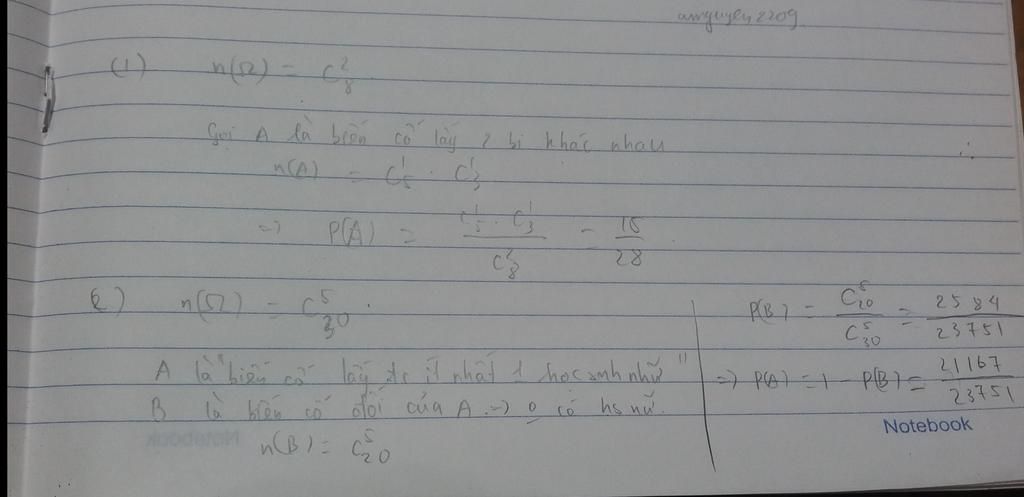 annguyen2209
(1) n(Ω) = C²₈
Gọi A là biến cố lấy 2 bi khác nhau
n(A) = C¹₅ . C¹₃
=> P(A) = (C¹₅ . C¹₃)/(C²₈) = 15/28
2) n(Ω) = C⁵₃₀ .
A là "biến cố lấy đc ít nhất 1 học sinh nhữ"
B là biến cố đối của A. -> 0 có hs nữ.
n(B) = C⁵₂₀
P(B) = C⁵₂₀/C⁵₃₀ = 2584/23751
=> P(A) = 1 - P(B) = 21167/23751
Notebook